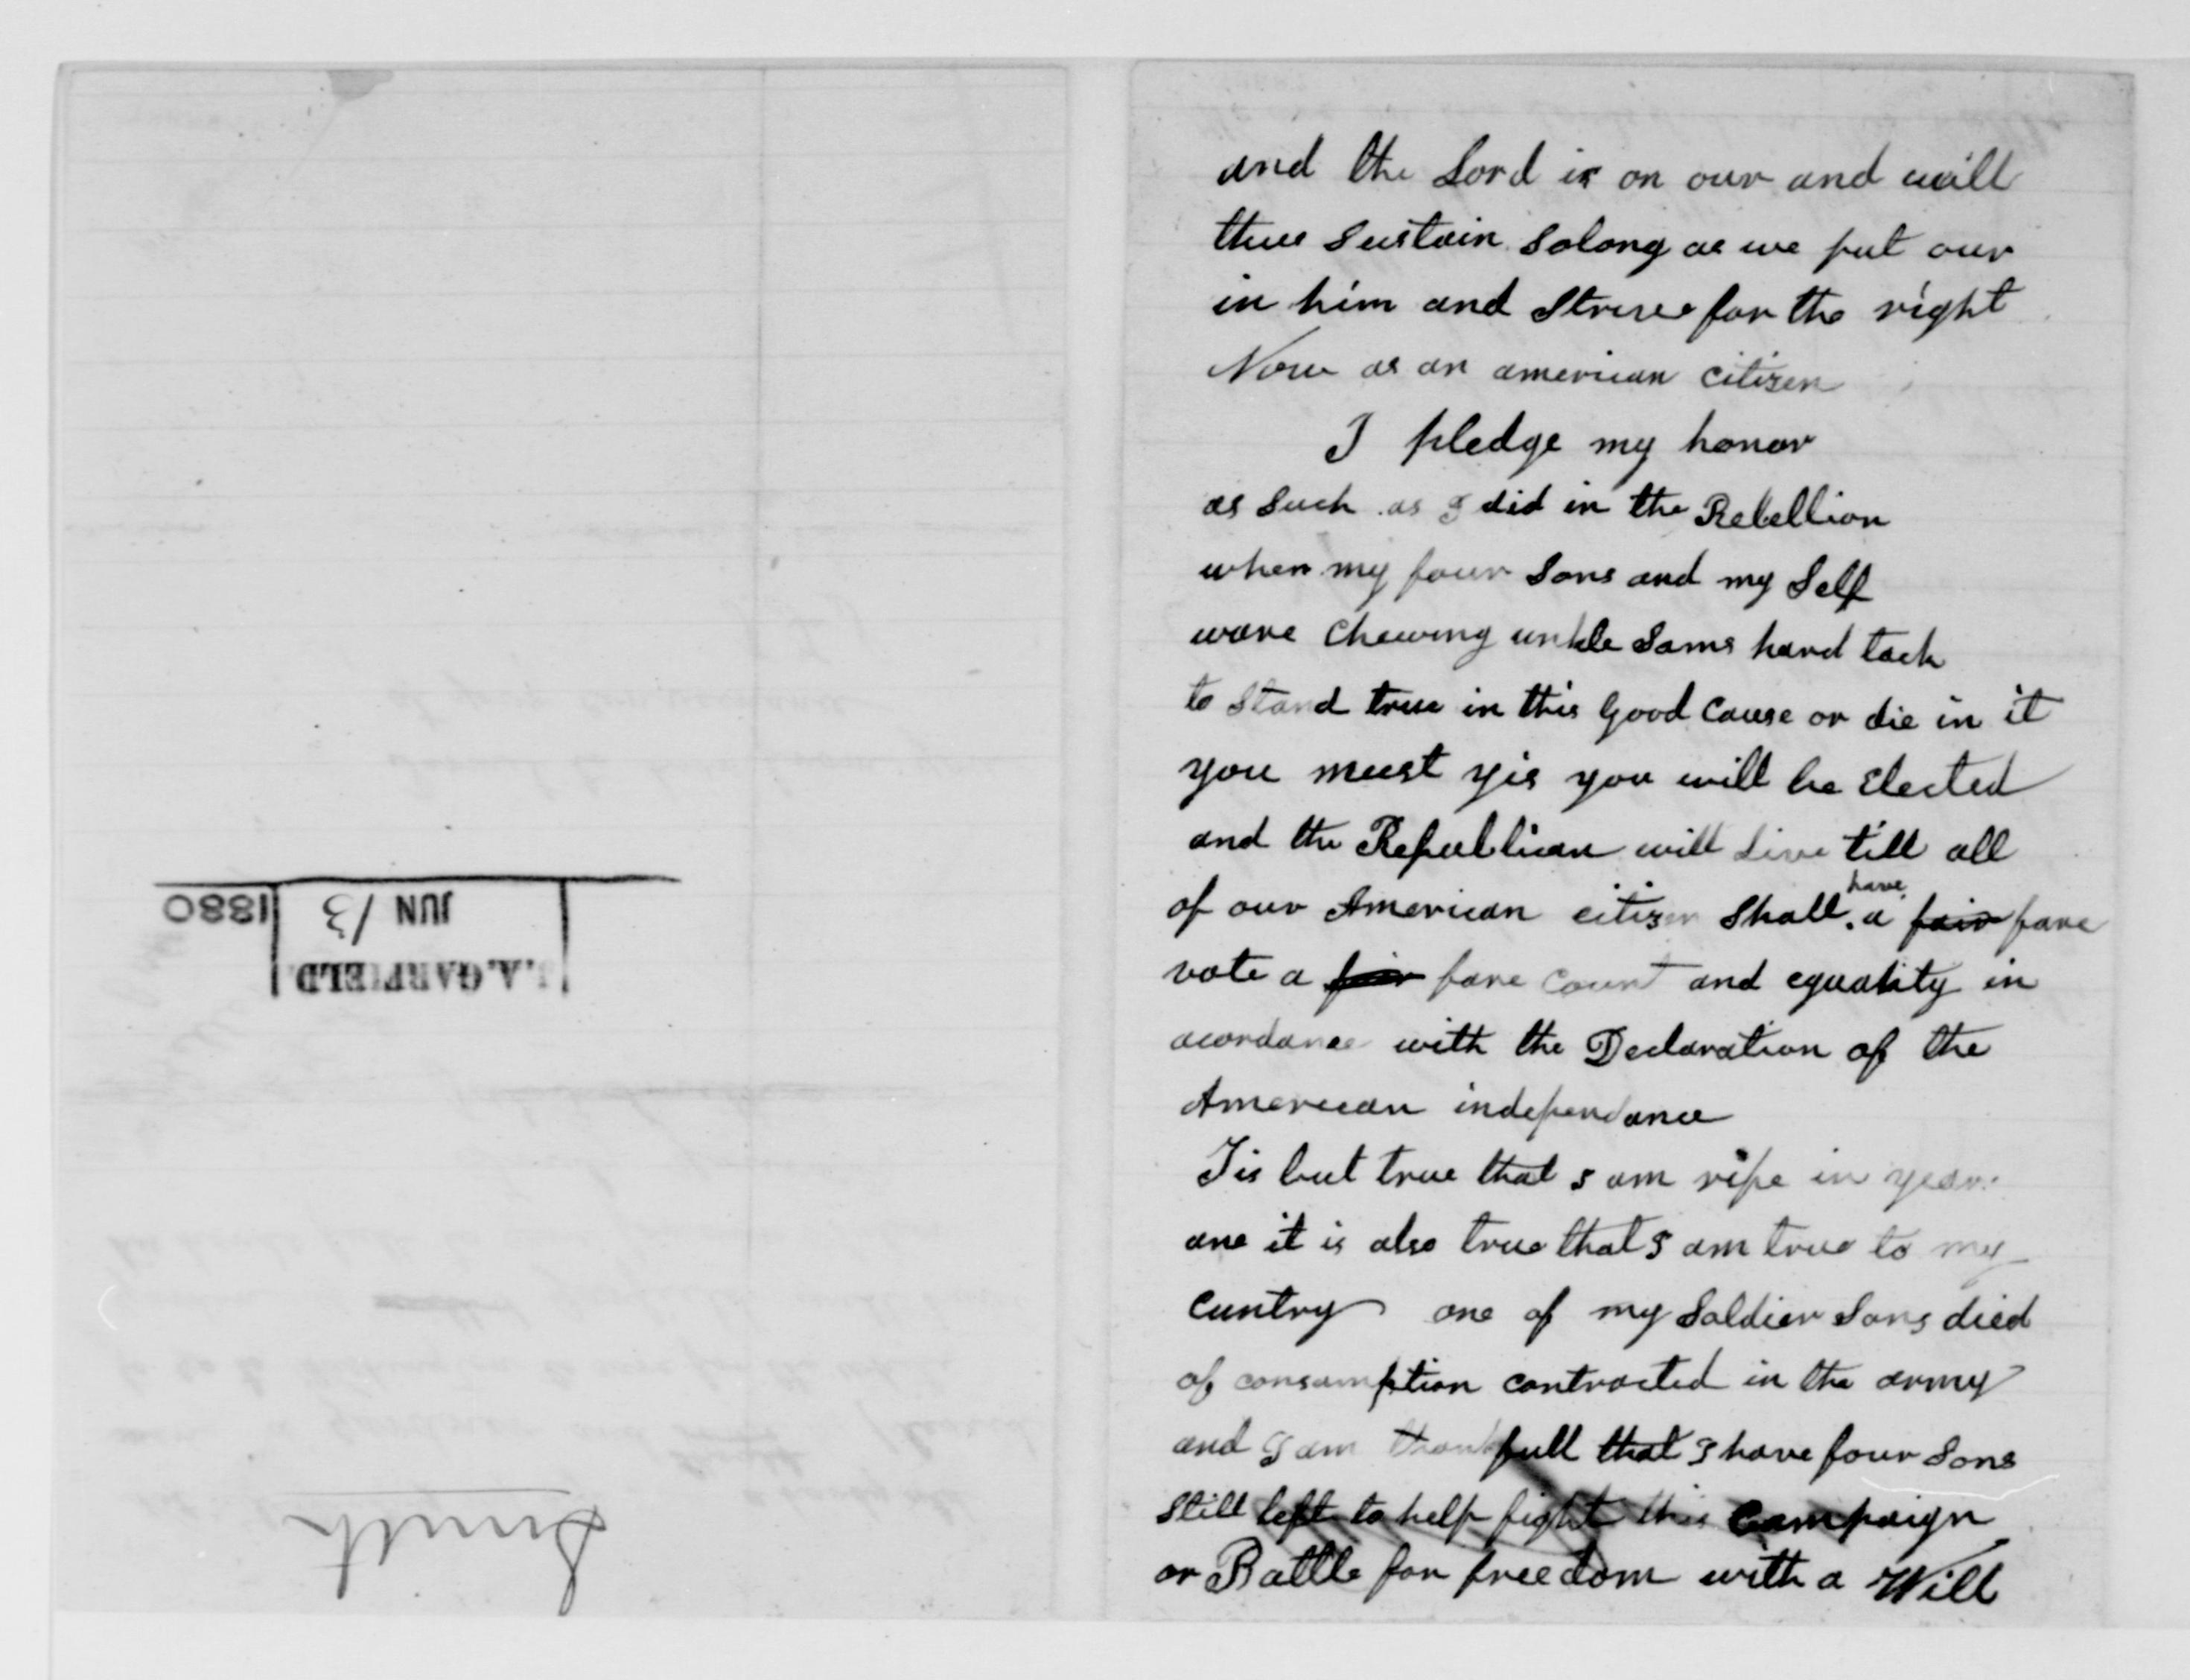 J.A. GARFIELD
JUN 13 1880
Smith
and the Lord is on our and will
thus Sustain Solong as we put our
in him and Strive for the right
Now as an american citizen
I pledge my honor
as Such as I did in the Rebellion
when my four Sons and my Self
ware Chewing unkle Sams hard tack
to Stand true in this Good Cause or die in it
you must yis you will be Elected
and the Republican will Live till all
of our American citizen Shall have a fair fare
vote a fair fare Count and equality in
acordance with the Declaration of the
American independance
Tis but true that I am ripe in years
one it is also true that I am true to my
Cuntry one of my Soldier Sons died
of consumption contracted in the army
and I am thankfull that I have four Sons
Still left to help fight this Campaign
or Battle for freedom with a Will